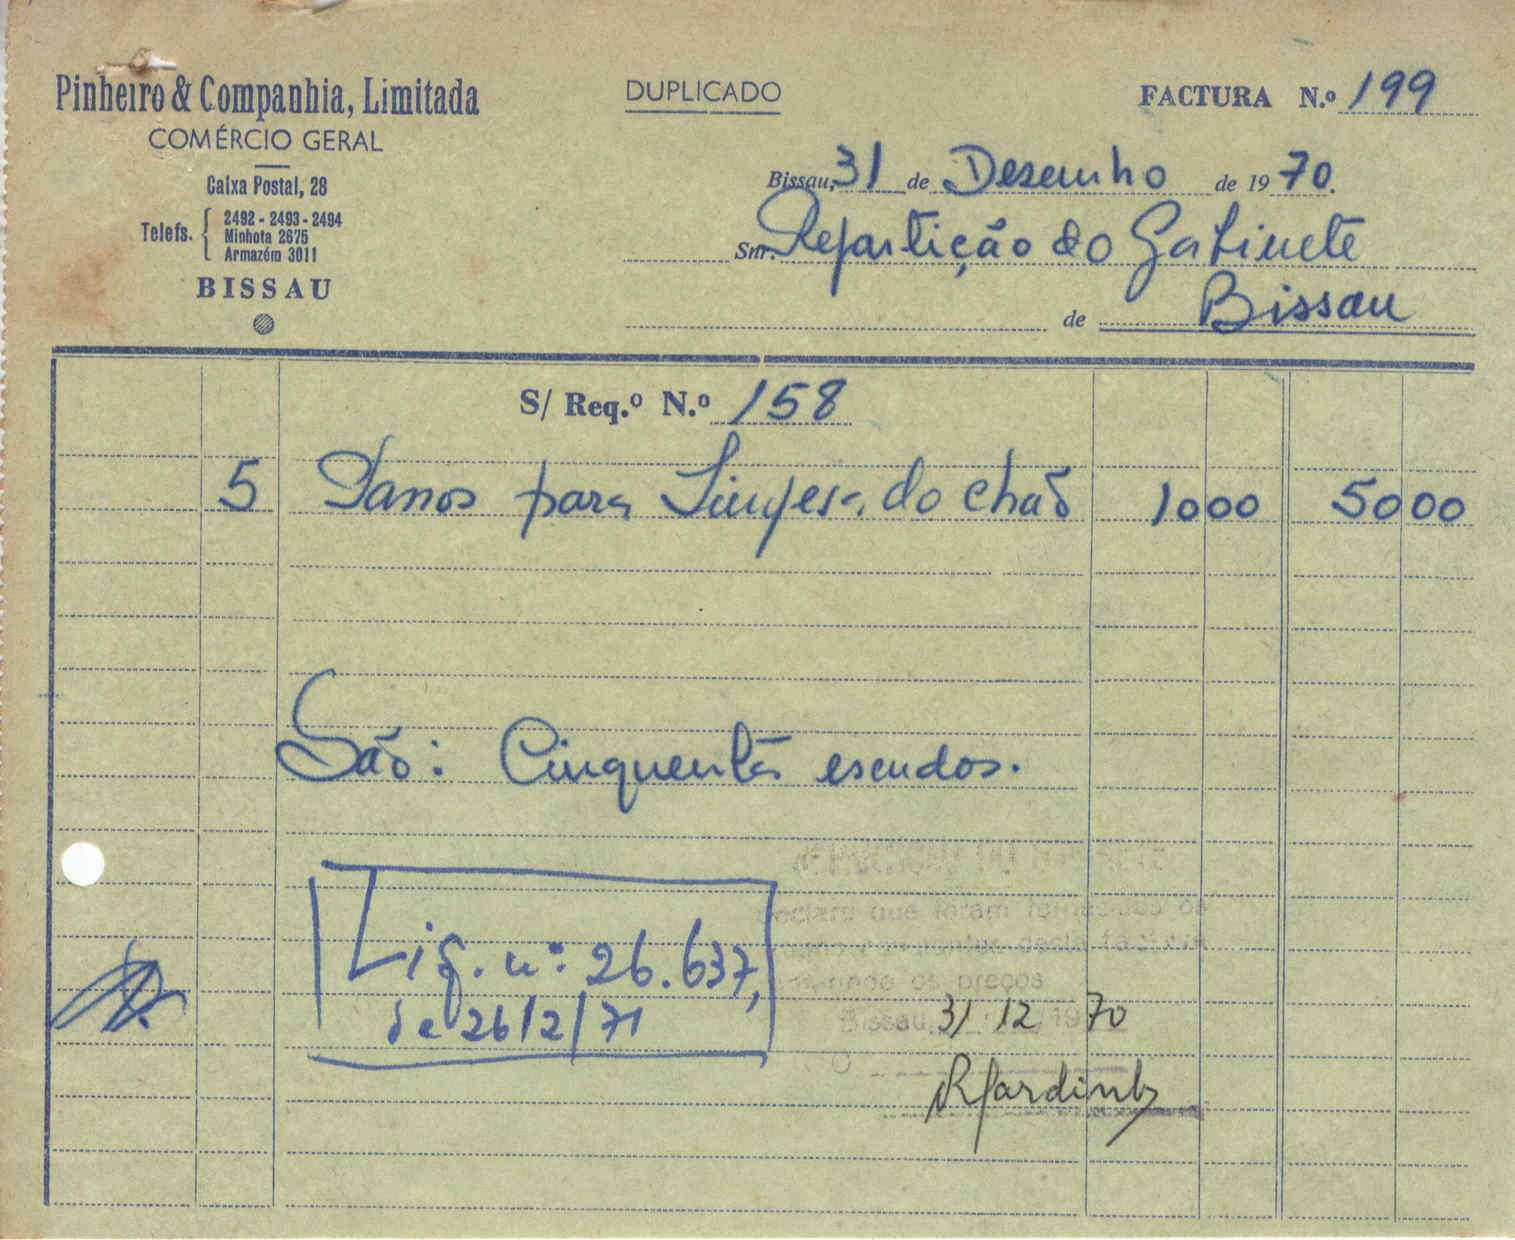 Pinheiro & Companhia, Limitada
COMÉRCIO GERAL
Caixa Postal, 28
Telefs. 2492 - 2493 - 2494
Minhota 2675
Armazém 3011
BISSAU
DUPLICADO
FACTURA N.º 199
Bissau, 31 de Dezembro de 1970.
Snr. Repartição do Gabinete
de Bissau
S/ Req.º N.º 158
5 Panos para Limpesa do chão 10 00 50 00
São: Cinquenta escudos.
Liq. nº 26.637,
de 26/2/71
Declaro que foram
os preços
Bissau, 31 12 1970
O